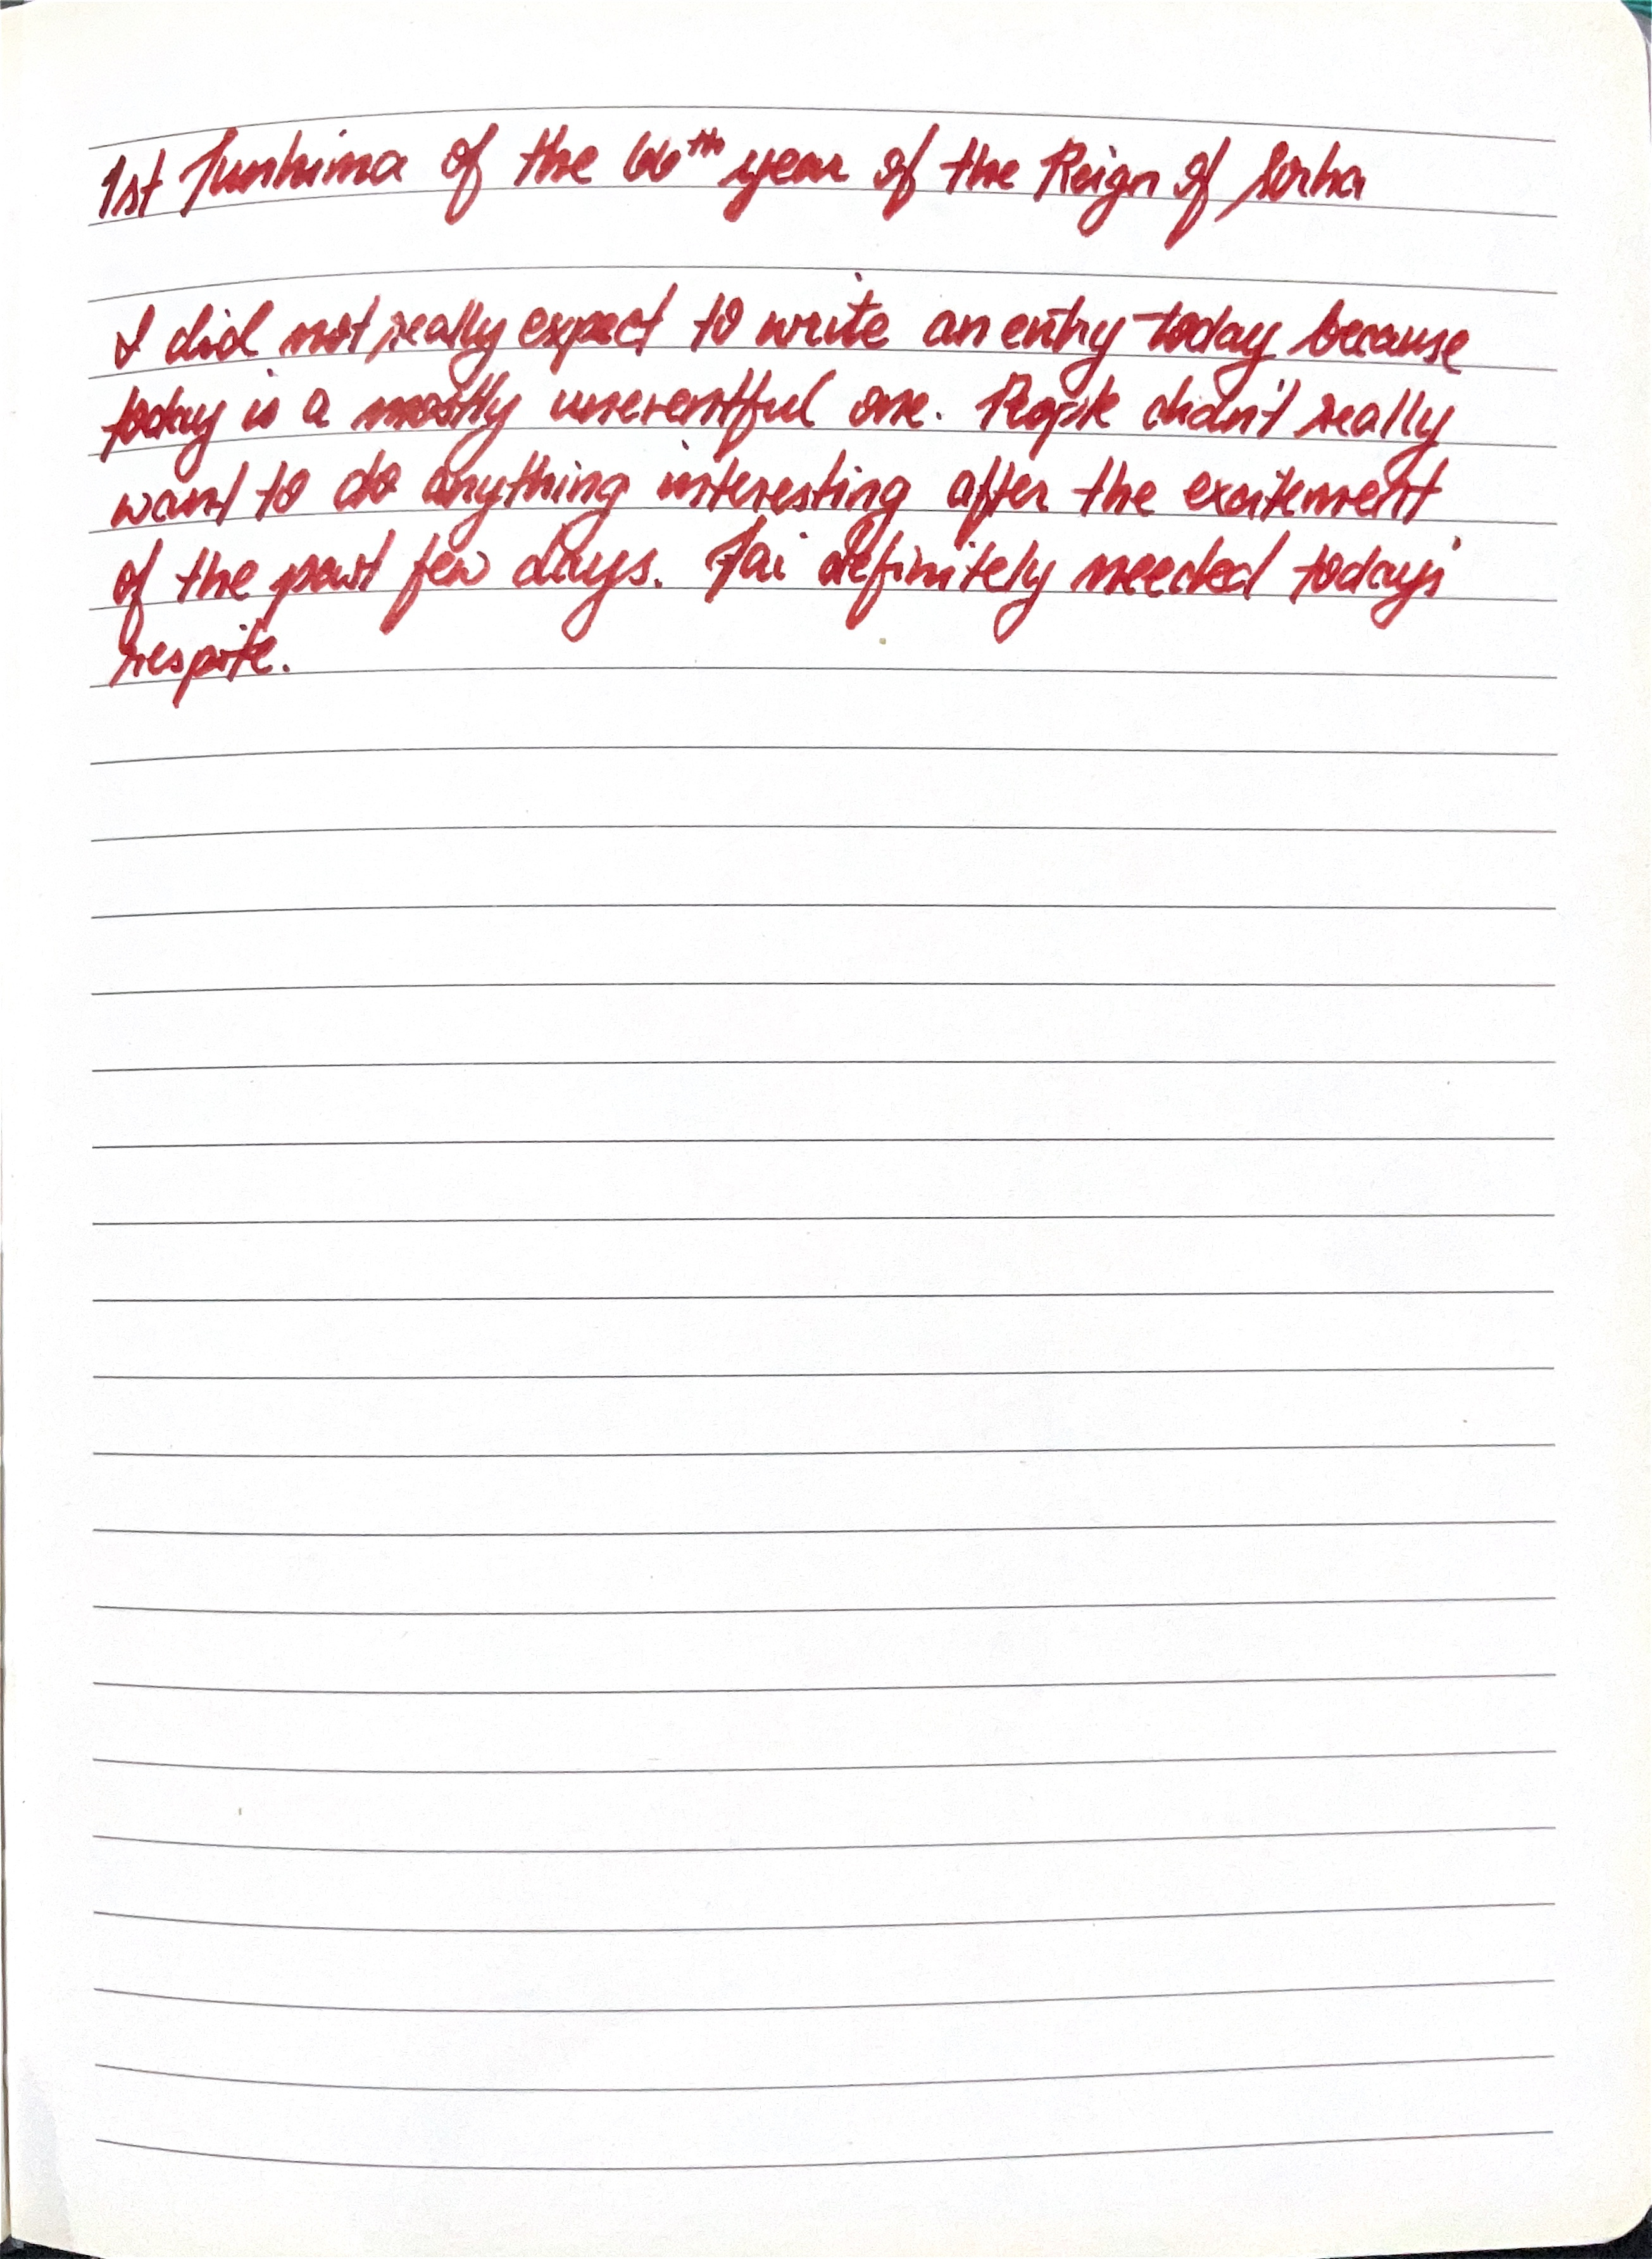 1st Junhima of the 66th year of the Reign of Sorha
I did not really expect to write an entry today because
today is a mostly uneventful one. People didn't really
want to do anything interesting after the excitement
of the past few days. Jai definitely needed today's
respite.